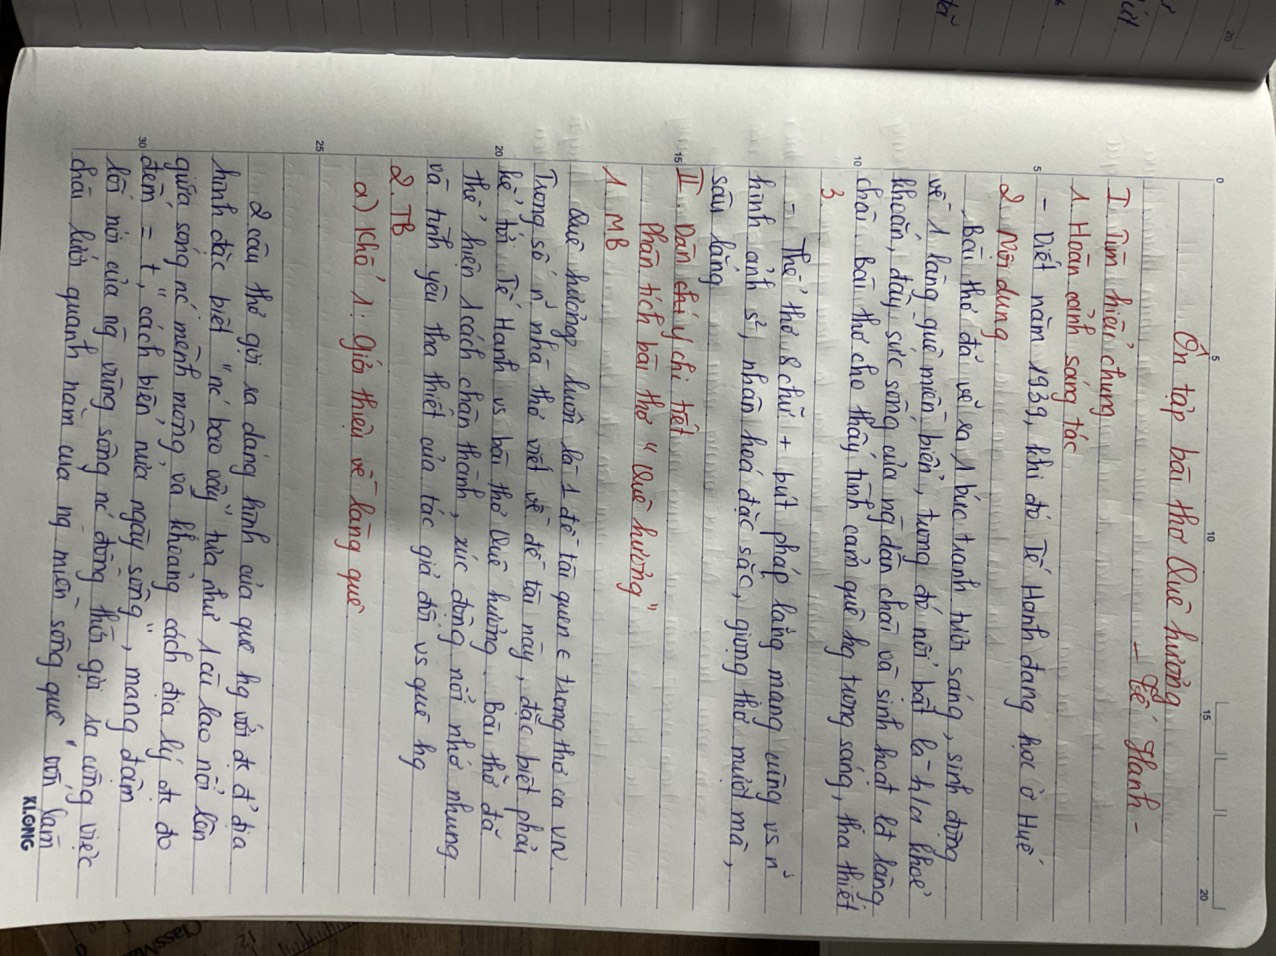 0 5 10 15 20
Ôn tập bài thơ Quê hương
- Tế Hanh -
I. Tìm hiểu chung
1. Hoàn cảnh sáng tác
5 - Viết năm 1939, khi đó Tế Hanh đang học ở Huế
2. Nội dung
Bài thơ đã vẽ ra 1 bức tranh tươi sáng, sinh động
về 1 làng quê miền biển, trong đó nổi bật là h/a khoẻ
khoắn, đầy sức sống của ng dân chài và sinh hoạt lđ làng
10 chài. Bài thơ cho thấy tình cảm quê hg trong sáng, tha thiết
3.
- Thể thơ 8 chữ + bút pháp lãng mạng cùng vs n'
hình ảnh s², nhân hoá đặc sắc, giọng thơ mượt mà,
sâu lắng
15 II. Dàn ý chi tiết
Phân tích bài thơ "Quê hương"
1. MB
Quê hương luôn là 1 đề tài quen € trong thơ ca VN.
Trong số n' nhà thơ viết về đề tài này, đặc biệt phải
20 kể tới Tế Hanh vs bài thơ Quê hương. Bài thơ đã
thể hiện 1 cách chân thành, xúc động nỗi nhớ nhung
và tình yêu tha thiết của tác giả đối vs quê hg
2. TB
a) Khổ 1: Giới thiệu về làng quê
25
2 câu thơ gợi ra dáng hình của quê hg với đk đ' địa
hình đặc biệt "nc' bao vây" tựa như 1 cù lao nổi lên
giữa sông nc' mênh mông, và khoảng cách địa lý đc đo
30 đếm = t, "cách biển nửa ngày sông", mang đậm
lối nói của ng vùng sông nc' đồng thời gợi ra công việc
chài lưới quanh năm của ng miền sông quê "vốn làm
KLONG